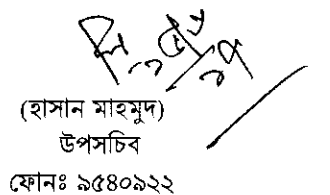 (হাসান মাহমুদ)
উপসচিব
ফোনঃ ৯৫৪০৯২২